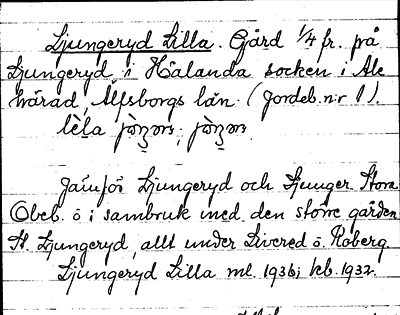 Ljungeryd Lilla. Gård 1/4 fr. på
Ljungeryd i Hålanda socken i Ale
härad, Älfsborgs län. (Jordeb. n:r 1).
Jämför Ljungeryd och Ljunger Stora
Obeb. ö i sambruk med den större gården
St. Ljungeryd, allt under Livered ö. Roberg
Ljungeryd Lilla ml. 1936; kb. 1932.